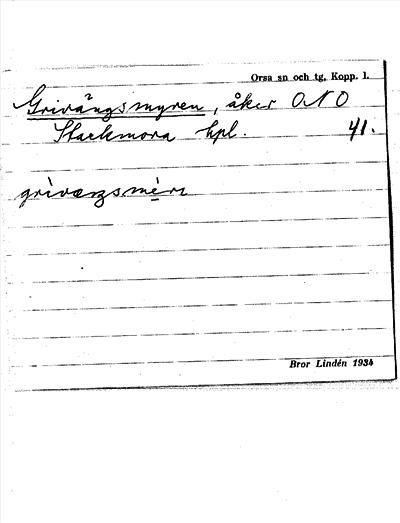 Orsa sn och tg, Kopp. l.
Grivångsmyren, åker ONO
Stackmora hpl. 41.
Bror Lindén 1934